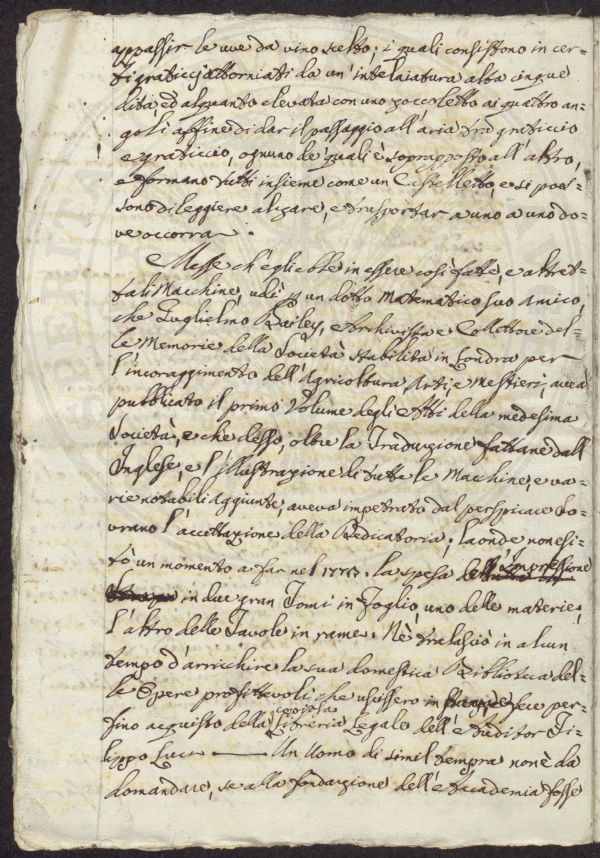 appassir le uve da vino scelto; i quali consistono in cer=
ti graticcj attorniati da un' intelaiatura alta cinque
dita, ed alquanto elevata con uno zoccoletto ai quattro an=
goli affine di dar il passaggio all'aria tra graticcio
e graticcio, ognuno de' quali è soprapposto all'altro,
e formano tutti insieme come un Castelletto, e si pos=
sono di leggiere alzare, e trasportar a uno a uno do=
ve occorra.
Messe ch'egli ebbe in essere così fatte, e altret=
tali Macchine, udì da un dotto Matematico suo Amico,
che Guglielmo Bailey, Archivista e Collettore del=
le Memorie della Società stabilita in Londra per
l'incoraggimento dell'Agricoltura, Arti, e Mestieri, avea
pubblicato il primo Volume degli Atti della medesima
Società, e che desso, oltre la Traduzione fattane dall'
Inglese, e l'illustrazione di tutte le Macchine, e va=
rie notabili aggiunte, aveva impetrato dal perspicace So=
vrano l'accettazione della Dedicatoria; laonde non esi=
tò un momento a far nel la spesa dell'Impressione
in due gran Tomi in Foglio, uno delle materie,
l'altro delle Tavole in rame. Nè tralasciò in alcun
tempo d'arricchire la sua domestica Biblioteca del=
le Opere profittevoli che uscissero in stampa, e fece per=
fino acquisto della copiosa Libreria Legale dell'Auditor Fi=
lippo Luci — Un Uomo di simil tempre non è da
domandare, se alla fondazione dell'Accademia fosse